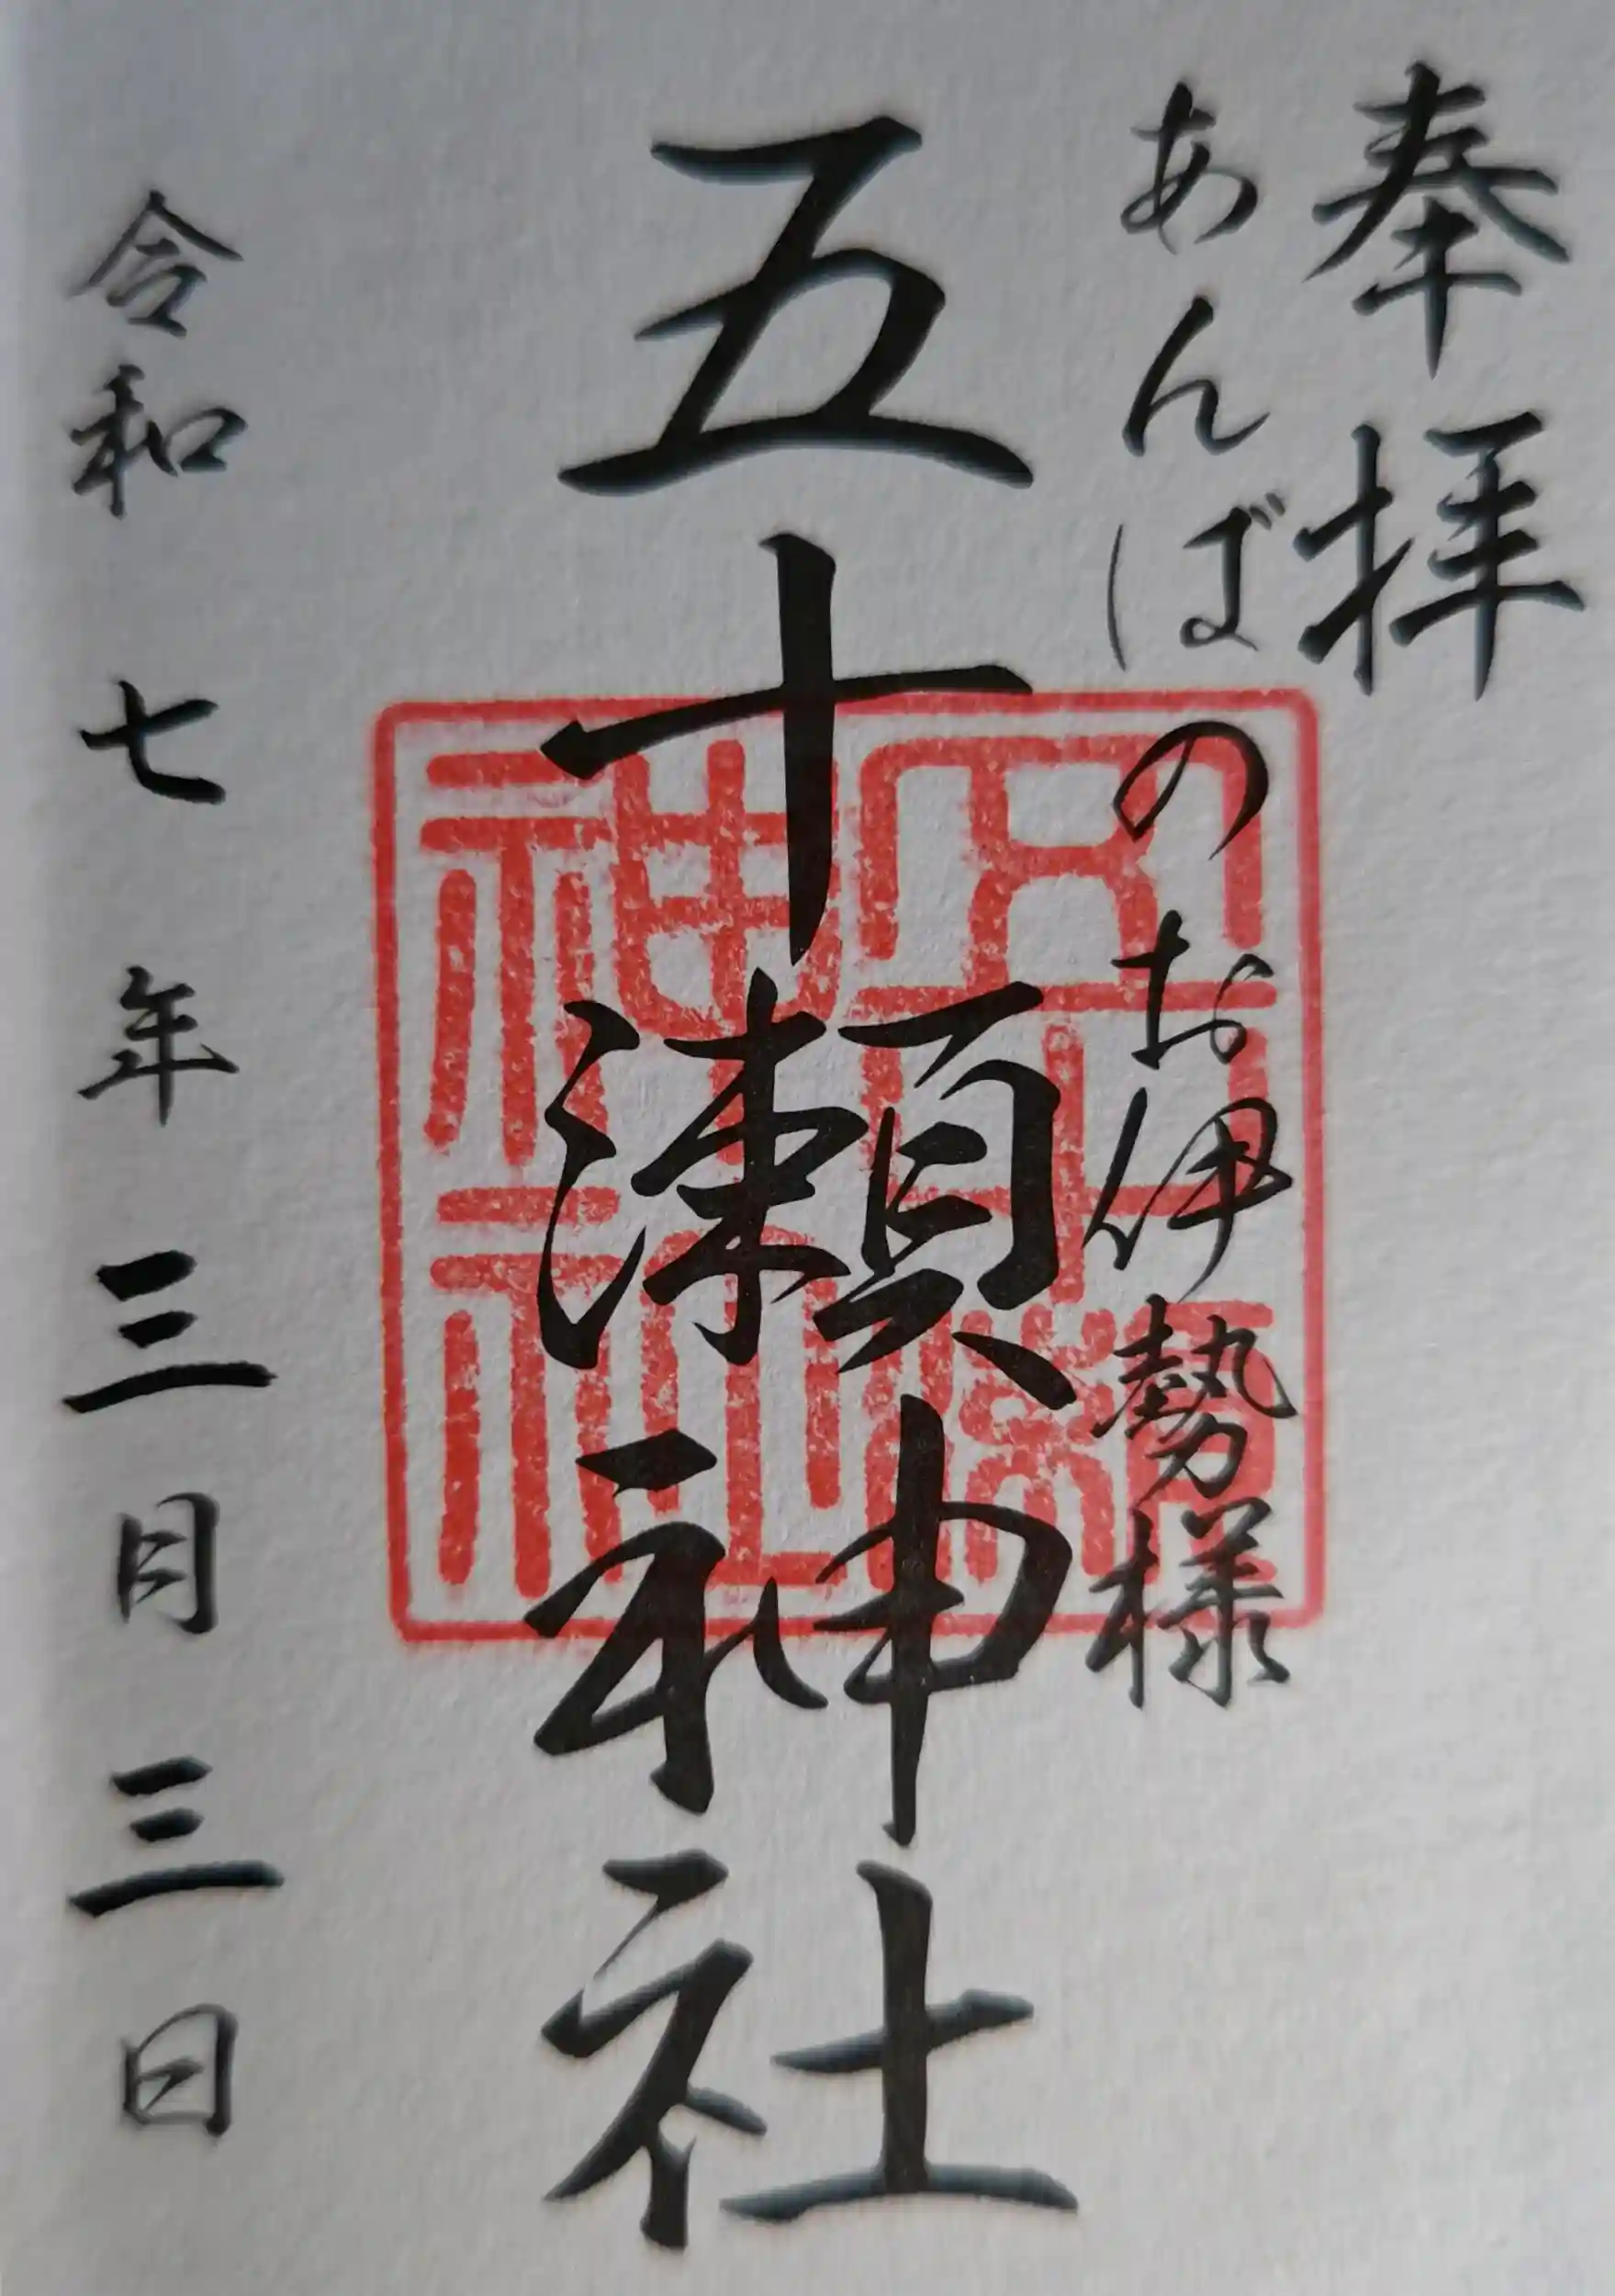 奉拝
あんばのお伊勢様
五十瀬神社
令和七年三月三日
五十瀬
神社